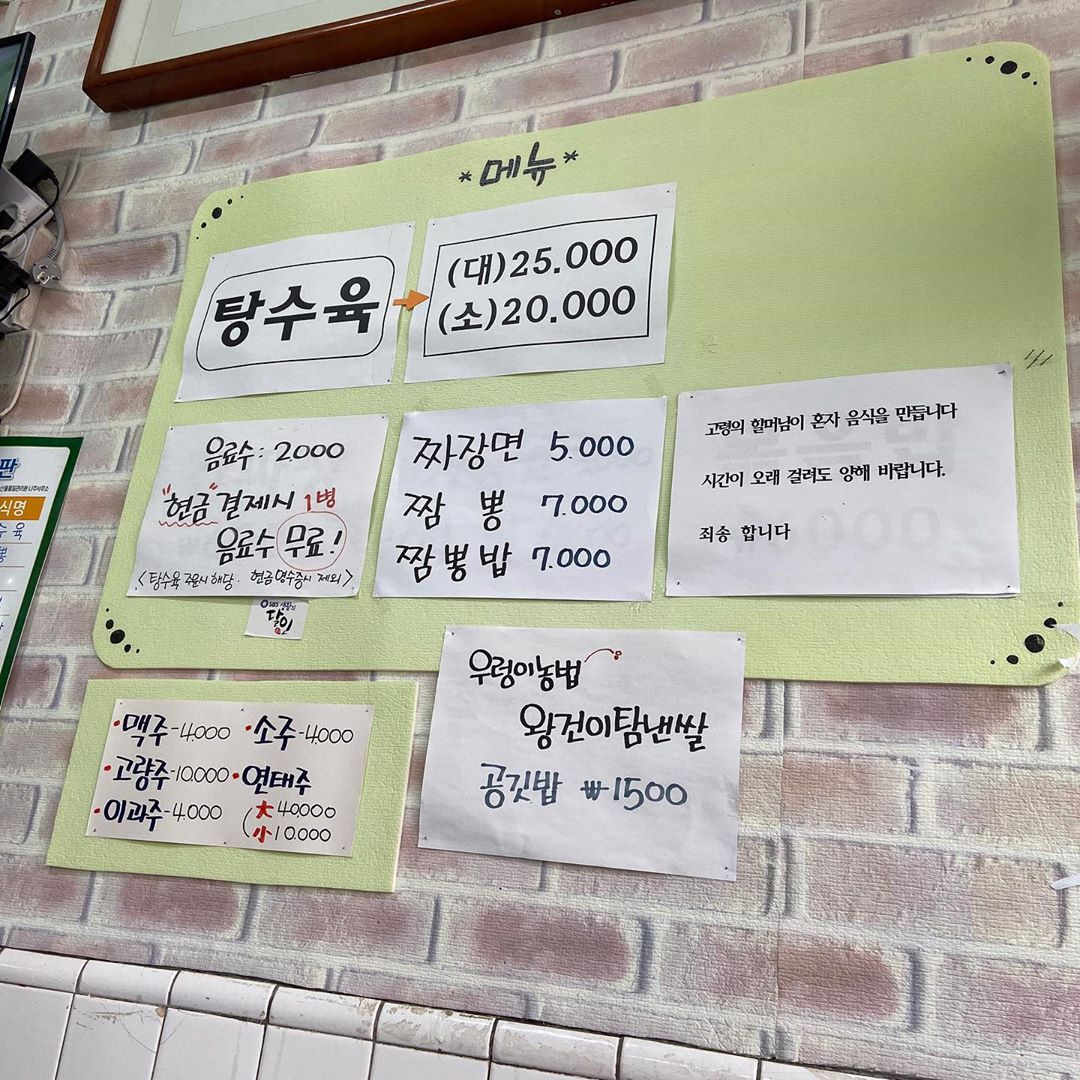 *메뉴*
탕수육
(대)25.000
(소)20.000
음료수: 2000
"현금"결제시 1병
음료수 무료!
<탕수육 주문시 해당. 현금영수증시 제외>
SBS 생활의
달인
짜장면 5.000
짬 뽕 7.000
짬뽕밥 7.000
고령의 할머님이 혼자 음식을 만듭니다
시간이 오래 걸려도 양해 바랍니다.
죄송 합니다
•맥주-4.000 •소주-4.000
•고량주-10.000 •연태주
•이과주-4.000 大 40,000
小 10.000
우렁이농법
왕건이탐낸쌀
공깃밥 ₩1500
판
식명
수 육
뽕